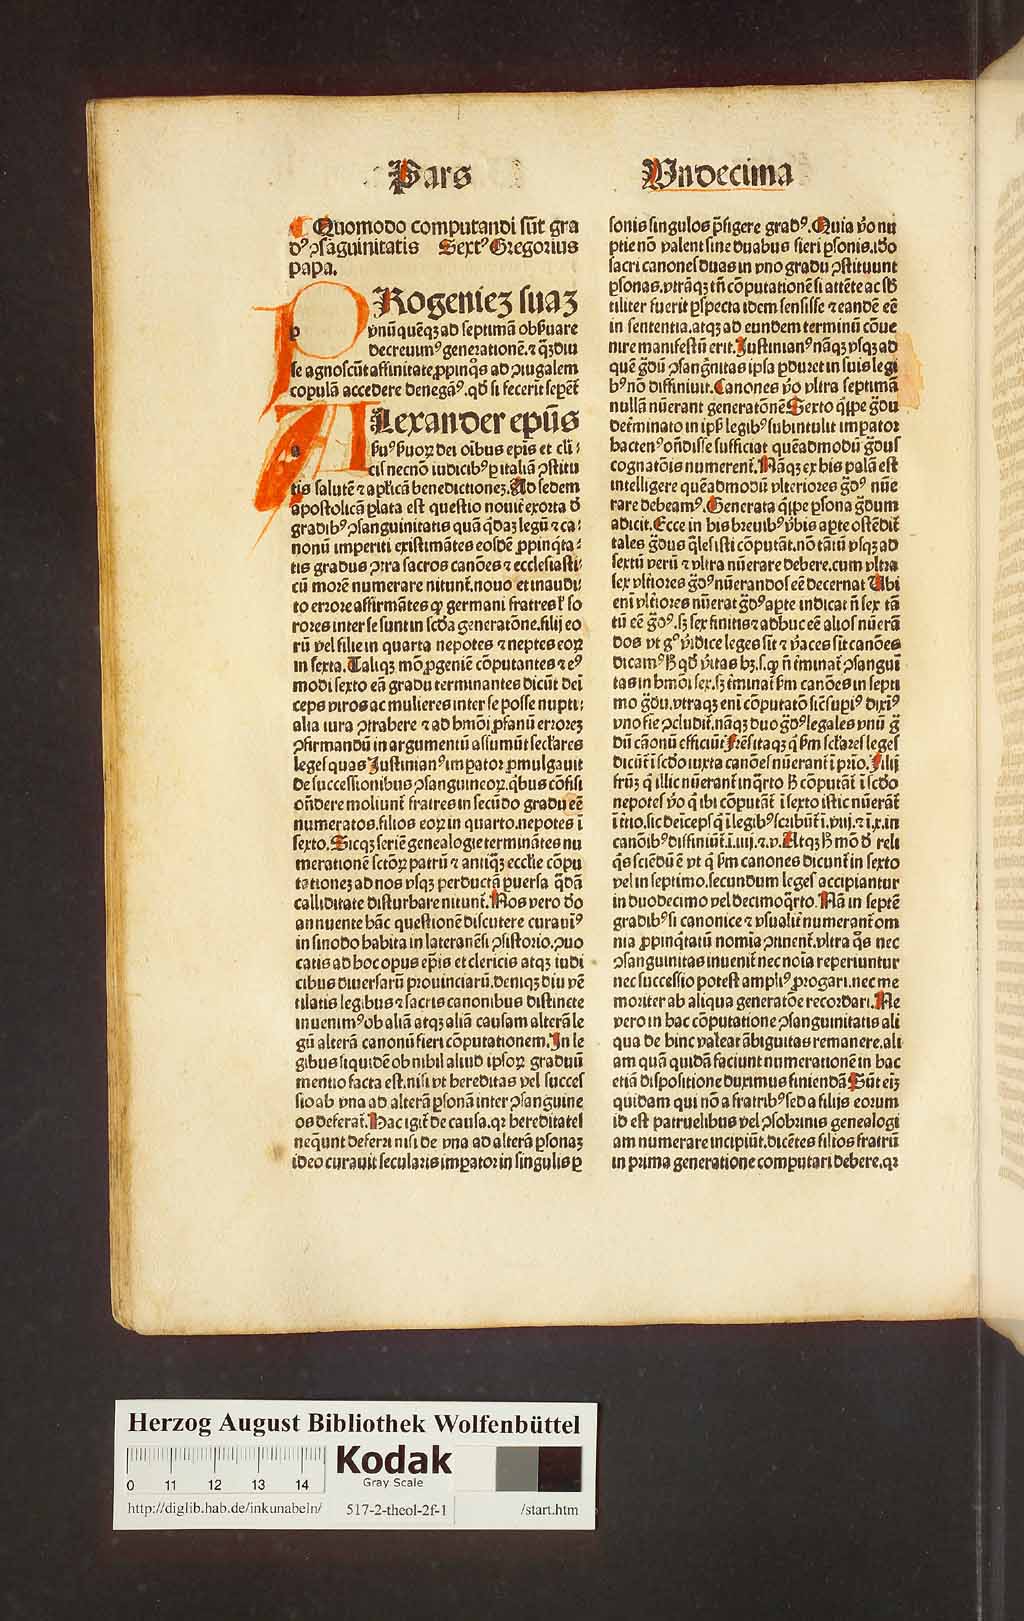 Pars
Vndecima
Quomodo computandi sūt gra
dꝰ ꝯsaguinitatis Sextꝰ Gregorius
papa.
PRogeniez suaz
p vnū quēqꝫ ad septimā obẜuare
decreuimꝰ generationē. ⁊ qꝫdiu
se agnoscūt affinitate ꝓpinqͦs ad ꝯiugalem
copulā accedere denegāꝰ. qd̓ si fecerit sepet̄
ALexander ep̄us
a ẜuꝰ ẜuoꝝ dei oībus ep̄is et cl̓i
cis necnō iudicibꝰ ꝑ italiā ꝯstitu
tis salutē ⁊ apl̓icā benedictionez. Ad sedem
apostolicā ꝑlata est questio nouit̓ exorta d̓
gradibꝰ ꝯsanguinitatis quā qͥdaꝫ legū ⁊ ca
nonū imperiti existimātes eosdē ꝓpinqͥta
tis gradus ꝯtra sacros canōes ⁊ ecclesiasti
cū morē numerare nitunt̓. nouo et inaudi
to errore affirmātes ꝙ germani fratres ł so
rores inter se sunt in scd̓a generatōne. filij eo
rū vel filie in quarta nepotes ⁊ neptes eoꝝ
in sexta. Taliqꝫ mō ꝓgeniē cōputantes ⁊ eꝰ
modi sexto eā gradu terminantes dicūt dei
ceps viros ac mulieres inter se posse nupti
alia iura ꝯtrahere ⁊ ad hmōi ꝓfanū errorez
ꝯfirmandū in argumentū assumūt secl̓ares
leges quas Justinianꝰ imꝑator ꝓmulgauit
de successionibus ꝯsanguineoꝝ. qͥbus cōfisi
oñdere moliunt̓ fratres in secūdo gradu eē
numeratos. filios eoꝝ in quarto. nepotes ī
sexto. Sicqꝫ seriē genealogie terminātes nu
merationē sctōꝝ patrū ⁊ antiqͣꝫ eccl̓ie cōpu
tationez ad nos vsqꝫ perductā ꝑuersa qͣdā
calliditate disturbare nitunt̓. Nos vero d̓o
annuente hāc questionē discutere curauīꝰ
in sinodo habita in lateranēsi ꝯsistorio. ꝯuo
catis ad hoc opus ep̄is et clericis atqꝫ iudi
cibus diuersarū prouinciarū. Deniqꝫ diu vē
tilatis legibus ⁊ sacris canonibus distincte
inuenimꝰ ob aliā atqꝫ aliā causam alterā le
gū alterā canonū fieri cōputationem. In le
gibus siquidē ob nihil aliud ipsoꝝ graduū
mentio facta est. nisi vt hereditas vel succes
sio ab vna ad alterā ꝑsonā inter ꝯsanguine
os deferat̓. Hac igit̓ de causa. qꝛ hereditates
nequnt deferri nisi de vna ad alterā ꝑsonaꝫ
ideo curauit secularis imꝑator in singulis ꝑ
sonis singulos p̄figere gradꝰ. Quia v̓o nu
ptie nō valent sine duabus fieri ꝑsonis. id̓o
sacri canones duas in vno gradu ꝯstituunt
ꝑsonas. vtrāqꝫ tn̄ cōputationē si attēte ac sb̓
tiliter fuerit ꝑspecta idem sensisse ⁊ eandē eē
in sententia. atqꝫ ad eundem terminū cōue
nire manifestū erit. Justinianꝰ nāqꝫ vsqꝫ ad
quē g̓dū ꝯsang̓nitas ipsa ꝑduret in suis legi
bꝰ nō diffiniuit. Canones v̓o vltra septimā
nullā nūerant generatōnē Sexto qͥpe g̓du
det̓minato in ip̄ẜ legibꝰ subintulit imꝑator
hactenꝰ oñdisse sufficiat quēadmodū g̓dus
cognatōis numerent̓. Nāqꝫ ex his palā est
intelligere quēadmodū vlteriores g̓dꝰ nūe
rare debeamꝰ. Generata qͥpe ꝑsona g̓dum
adicit. Ecce in his breuibꝰ v̓bis aꝑte ostēdit̓
tales g̓dus q̄les isti cōputāt. nō tātū vsqꝫ ad
sextū verū ⁊ vltra nūerare debere. cum vltra
sex vlt̓iores g̓dꝰ nūerandos eē decernat Vbi
enī vlt̓iores nūerat g̓dꝰ aꝑte indicat ñ sex tā
tū eē g̓dꝰ. sꝫ sex finitis ⁊ adhuc eē alios nūerā
dos vt gͦ v̓idice leges sīt ⁊ v̓aces sīt canōes
dicamꝰ hͦ qd̓ v̓itas hꝫ. s. ꝙ ñ t̓minat̓ ꝯsangui
tas in hmōi sex. sꝫ t̓minat̓ ẜm canōes in septi
mo g̓du. vtraqꝫ enī cōputatō sic̄ suꝑiꝰ dixīꝰ
vno fine ꝯcludit̓. nāqꝫ duo g̓dꝰ legales vnū g̓
dū canonū efficiūt Fr̄es itaqꝫ qͥ ẜm secl̓ares leges
dicūt̓ ī scd̓o iuxta canōes nūerant̓ ī prīo. Filij
fr̄ūꝫ qͥ illic nūerant̓ in qͣrto hͥ cōputāt̓ ī scd̓o
nepotes v̓o qͥ ibi cōputāt̓ ī sexto istic nūerāt̓
ī t̓tio. sic deīceps qͥ ī legibꝰ scribūt̓ ī. viij. ⁊ ī. x. in
canōibꝰ diffiniūt̓. ī. iiij. ⁊. v. Atqꝫ hͦ mō d̓ reli
qͥs sciēdū ē vt qͥ ẜm canones dicunt̓ in sexto
vel in septimo. secundum leges accipiantur
in duodecimo vel decimoqͣrto. Nā in septē
gradibꝰ si canonice ⁊ vsualit̓ numerant̓ om
nia ꝓpinqͥtatū nomīa ꝯtinent̓. vltra qͦs nec
ꝯsanguinitas inuenit̓ nec noīa reperiuntur
nec successio potest ampliꝰ ꝓrogari. nec me
moriter ab aliqua generatōe recordari. Ne
vero in hac cōputatione ꝯsanguinitatis ali
qua de hinc valeat ābiguitas remanere. ali
am quā quidā faciunt numerationē in hac
etiā dispositione duximus finiendā Sūt eīꝫ
quidam qui nō a fratribꝰ sed a filijs eorum
id est patruelibus vel ꝯsobrinis genealogi
am numerare incipiūt. dicētes filios fratrū
in prima generatione computari debere. qꝛ
Herzog August Bibliothek Wolfenbüttel
Kodak
Gray Scale
0 11 12 13 14
http://diglib.hab.de/inkunabeln/ 517-2-theol-2f-1 /start.htm